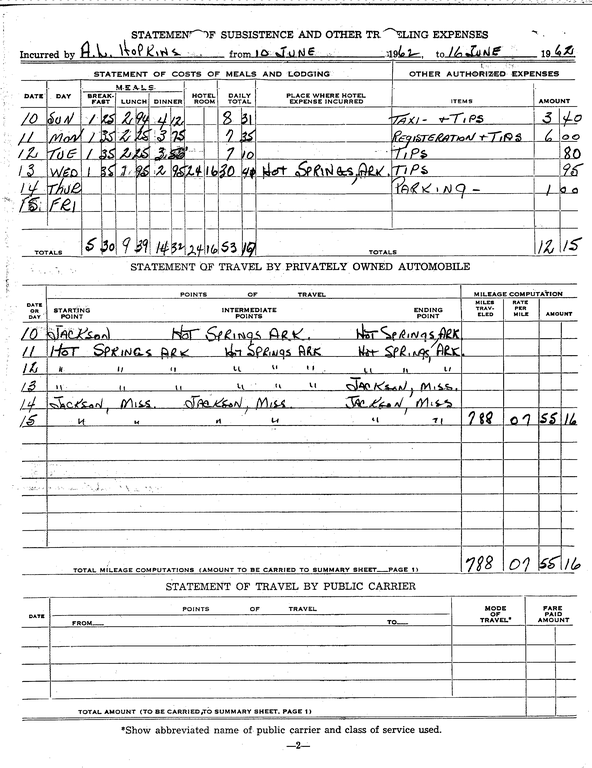 STATEMENT OF SUBSISTENCE AND OTHER TR ELING EXPENSES
Incurred by A.L. HOPKINS from 10 JUNE 1962, to 16 JUNE 1962
STATEMENT OF COSTS OF MEALS AND LODGING OTHER AUTHORIZED EXPENSES
DATE DAY MEALS BREAK-FAST LUNCH DINNER HOTEL ROOM DAILY TOTAL PLACE WHERE HOTEL EXPENSE INCURRED ITEMS AMOUNT
10 SUN 1 25 2 94 4 12 8 31 TAXI - + TIPS 3 40
11 MON 1 35 2 25 3 75 7 35 REGISTERATION + TIPS 6 00
12 TUE 1 35 2 25 3 50 7 10 TIPS 80
13 WED 1 35 1 95 2 95 24 16 30 41 HOT SPRINGS, ARK. TIPS 95
14 THUR PARKING - 1 00
15 FRI
TOTALS 5 30 9 39 14 32 24 16 53 17 TOTALS 12 15
STATEMENT OF TRAVEL BY PRIVATELY OWNED AUTOMOBILE
DATE OR DAY POINTS OF TRAVEL MILEAGE COMPUTATION
STARTING POINT INTERMEDIATE POINTS ENDING POINT MILES TRAV-ELED RATE PER MILE AMOUNT
10 JACKSON HOT SPRINGS ARK. HOT SPRINGS, ARK
11 HOT SPRINGS ARK HOT SPRINGS ARK HOT SPRINGS, ARK.
12 " " " " " " " " "
13 " " " " " " JACKSON, MISS.
14 JACKSON, MISS. JACKSON, MISS. JACKSON, MISS
15 " " " " " " 788 07 55 16
TOTAL MILEAGE COMPUTATIONS (AMOUNT TO BE CARRIED TO SUMMARY SHEET PAGE 1) 788 07 55 16
STATEMENT OF TRAVEL BY PUBLIC CARRIER
DATE POINTS OF TRAVEL MODE OF TRAVEL* FARE PAID AMOUNT
FROM TO
TOTAL AMOUNT (TO BE CARRIED TO SUMMARY SHEET, PAGE 1)
*Show abbreviated name of public carrier and class of service used.
—2—